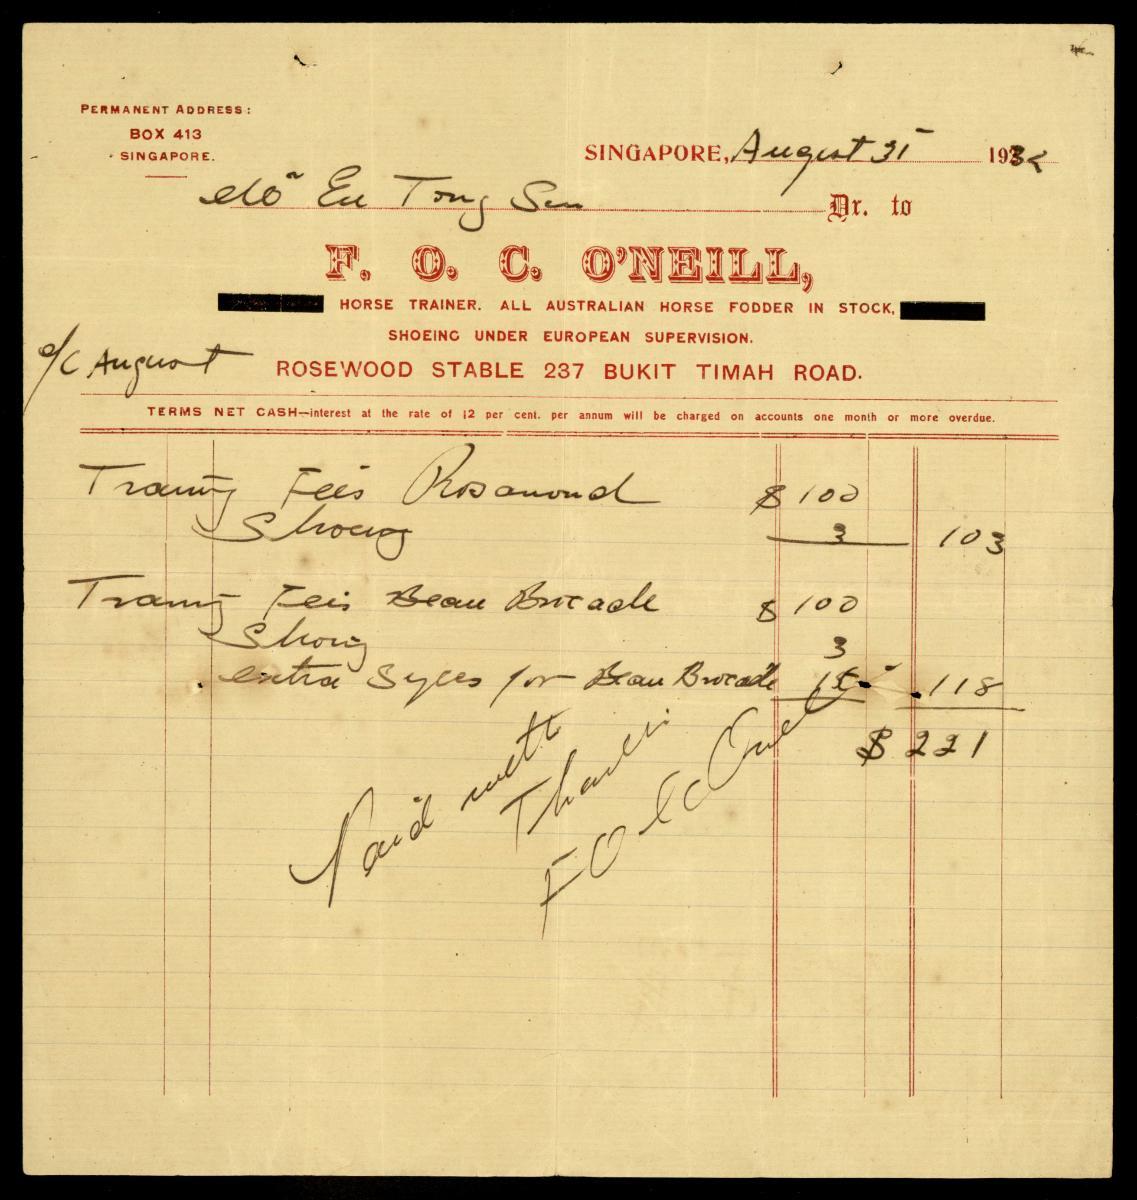 PERMANENT ADDRESS:
BOX 413
SINGAPORE.
SINGAPORE, August 31 1932
Eu Tong Sen Dr. to
F. O. C. O'NEILL,
HORSE TRAINER. ALL AUSTRALIAN HORSE FODDER IN STOCK,
SHOEING UNDER EUROPEAN SUPERVISION.
a/c August
ROSEWOOD STABLE 237 BUKIT TIMAH ROAD.
TERMS NET CASH—interest at the rate of 12 per cent. per annum will be charged on accounts one month or more overdue.
Training Fees Rosamond $ 100
Shoeing 3 103
Training Fees Beau Brocade $ 100
Shoeing 3
extra Syces for Beau Brocade 15 118
$ 221
Paid with
Thanks
F O C O'Neill